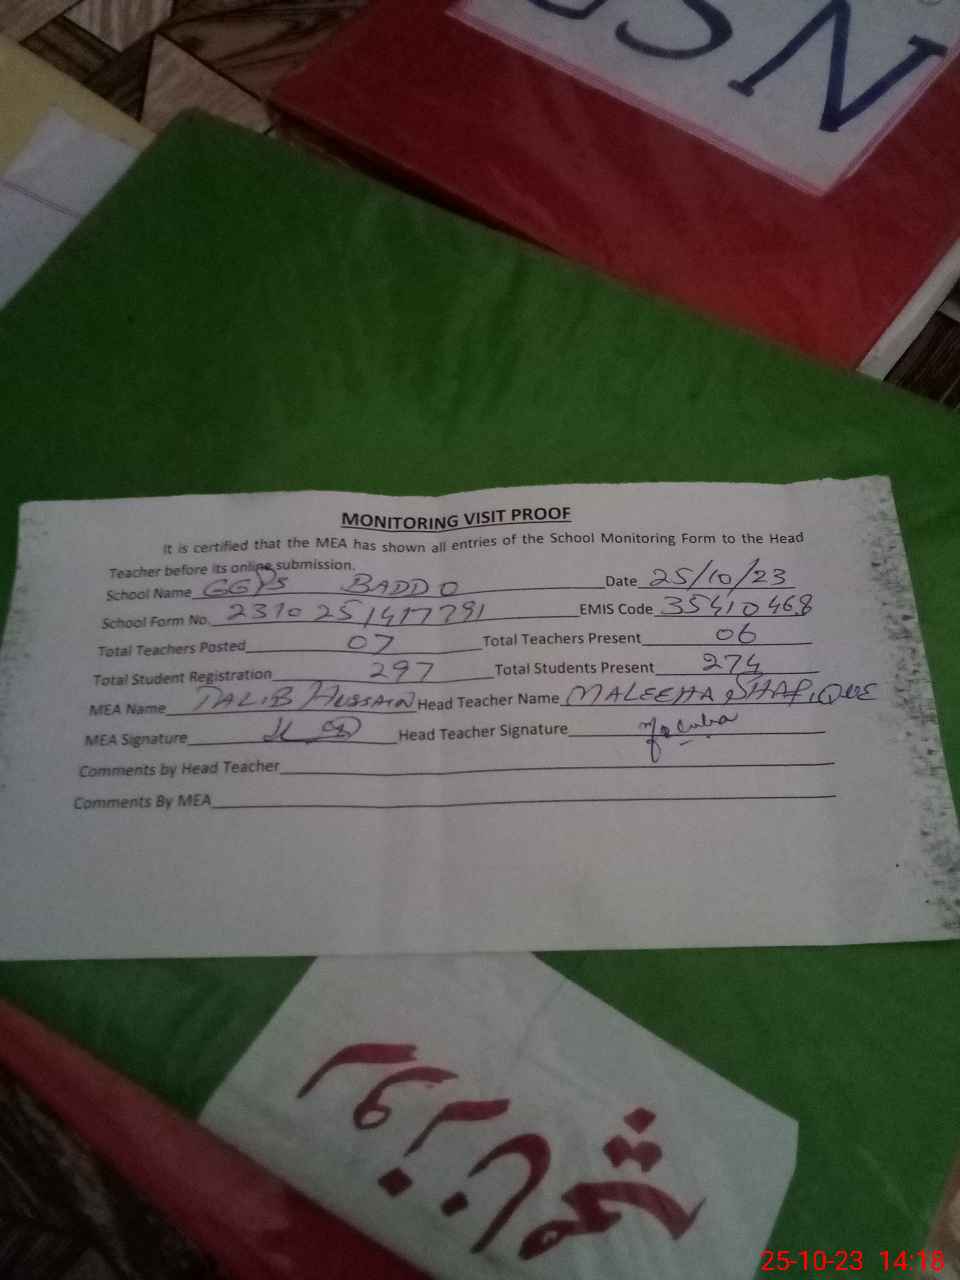 SN
MONITORING VISIT PROOF
It is certified that the MEA has shown all entries of the School Monitoring Form to the Head
Teacher before its online submission.
School Name GGPS BADDO Date 25/10/23
School Form No. 2310251417791 EMIS Code 35410468
Total Teachers Posted 07 Total Teachers Present 06
Total Student Registration 297 Total Students Present 274
MEA Name TALIB HUSSAIN Head Teacher Name MALEEHA SHAFIQUE
MEA Signature Head Teacher Signature
Comments by Head Teacher
Comments By MEA
25-10-23 14:18